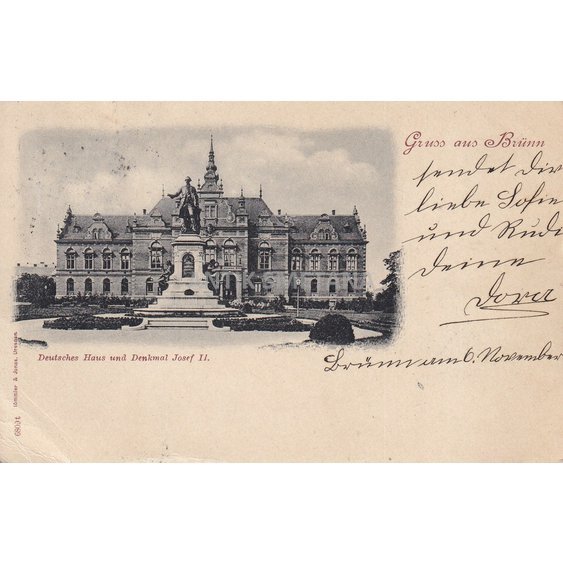 Gruss aus Brünn
sendet Dir
liebe Sofie
und Rudi
deine
Dora
Brünn am 6. November
Deutsches Haus und Denkmal Josef II.
680/1